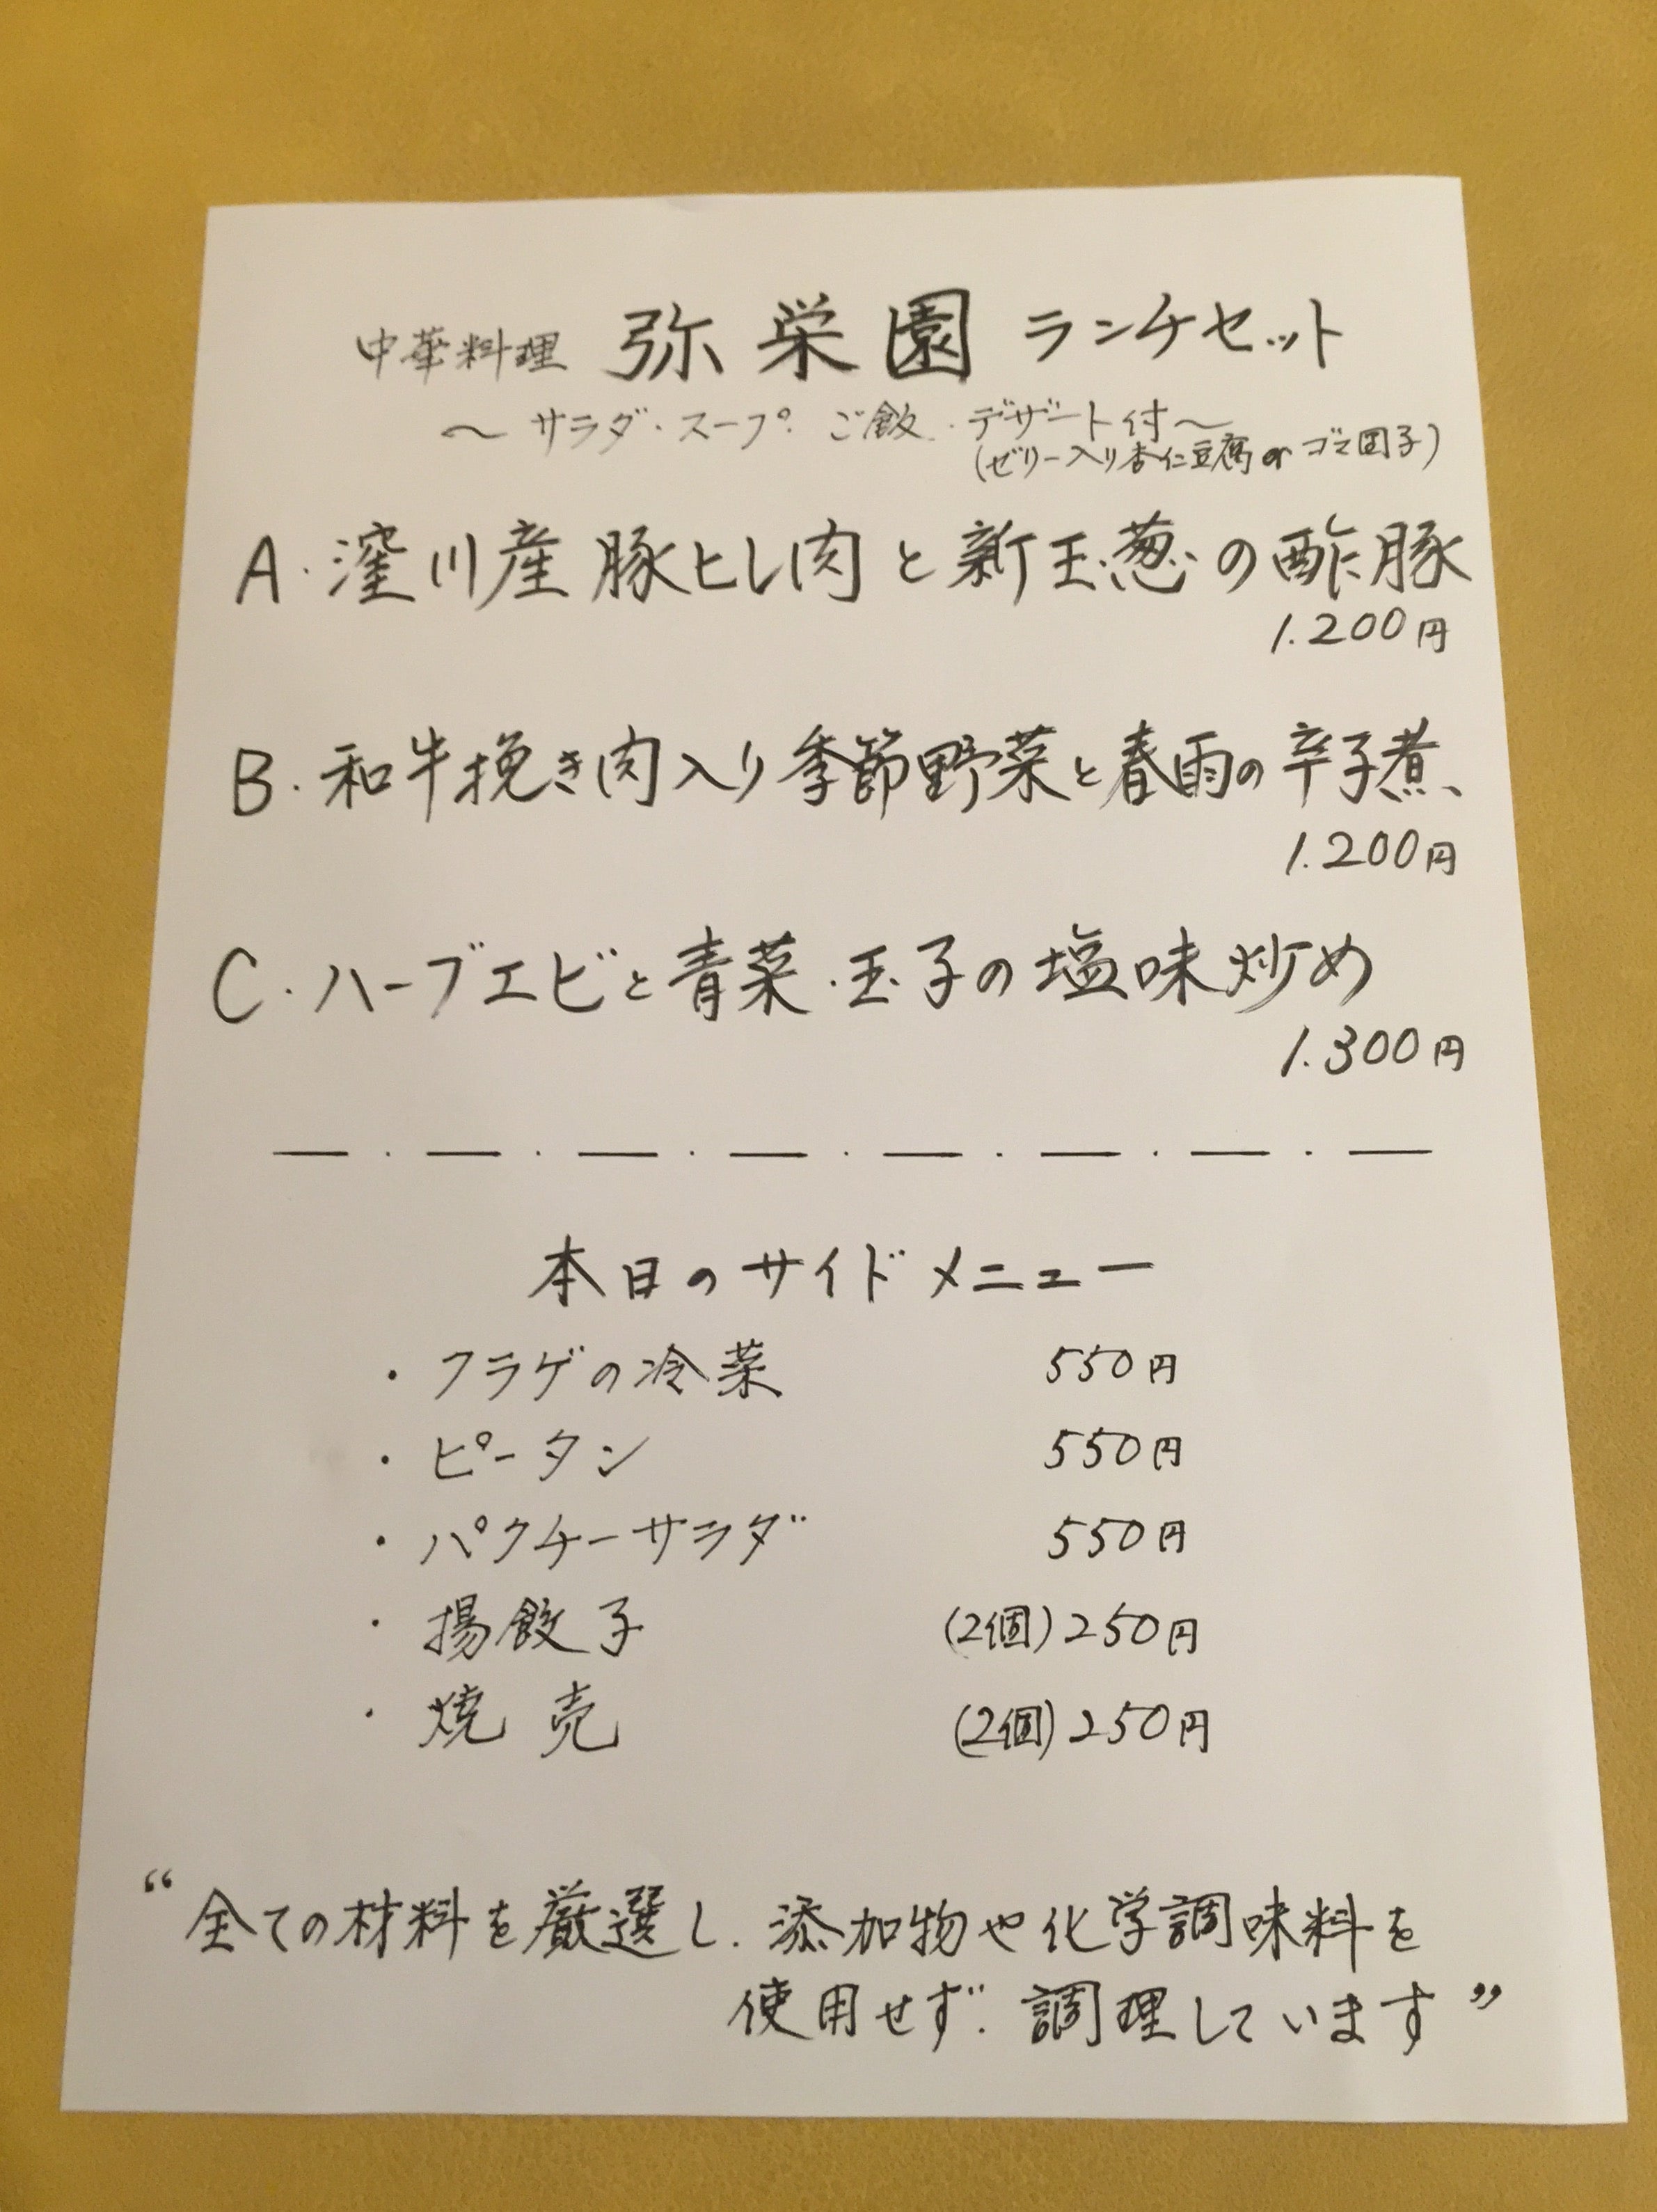 中華料理 弥栄園 ランチセット
〜サラダ・スープ・ご飯・デザート付〜
(ゼリー入り杏仁豆腐 or ゴマ団子)
A. 窪川産 豚ヒレ肉と新玉葱の酢豚
1.200円
B. 和牛挽き肉入り季節野菜と春雨の辛子煮
1.200円
C. ハーブエビと青菜・玉子の塩味炒め
1.300円
本日のサイドメニュー
・フラゲの冷菜 550円
・ピータン 550円
・パクチーサラダ 550円
・揚餃子 (2個) 250円
・焼売 (2個) 250円
“全ての材料を厳選し、添加物や化学調味料を
使用せず、調理しています”